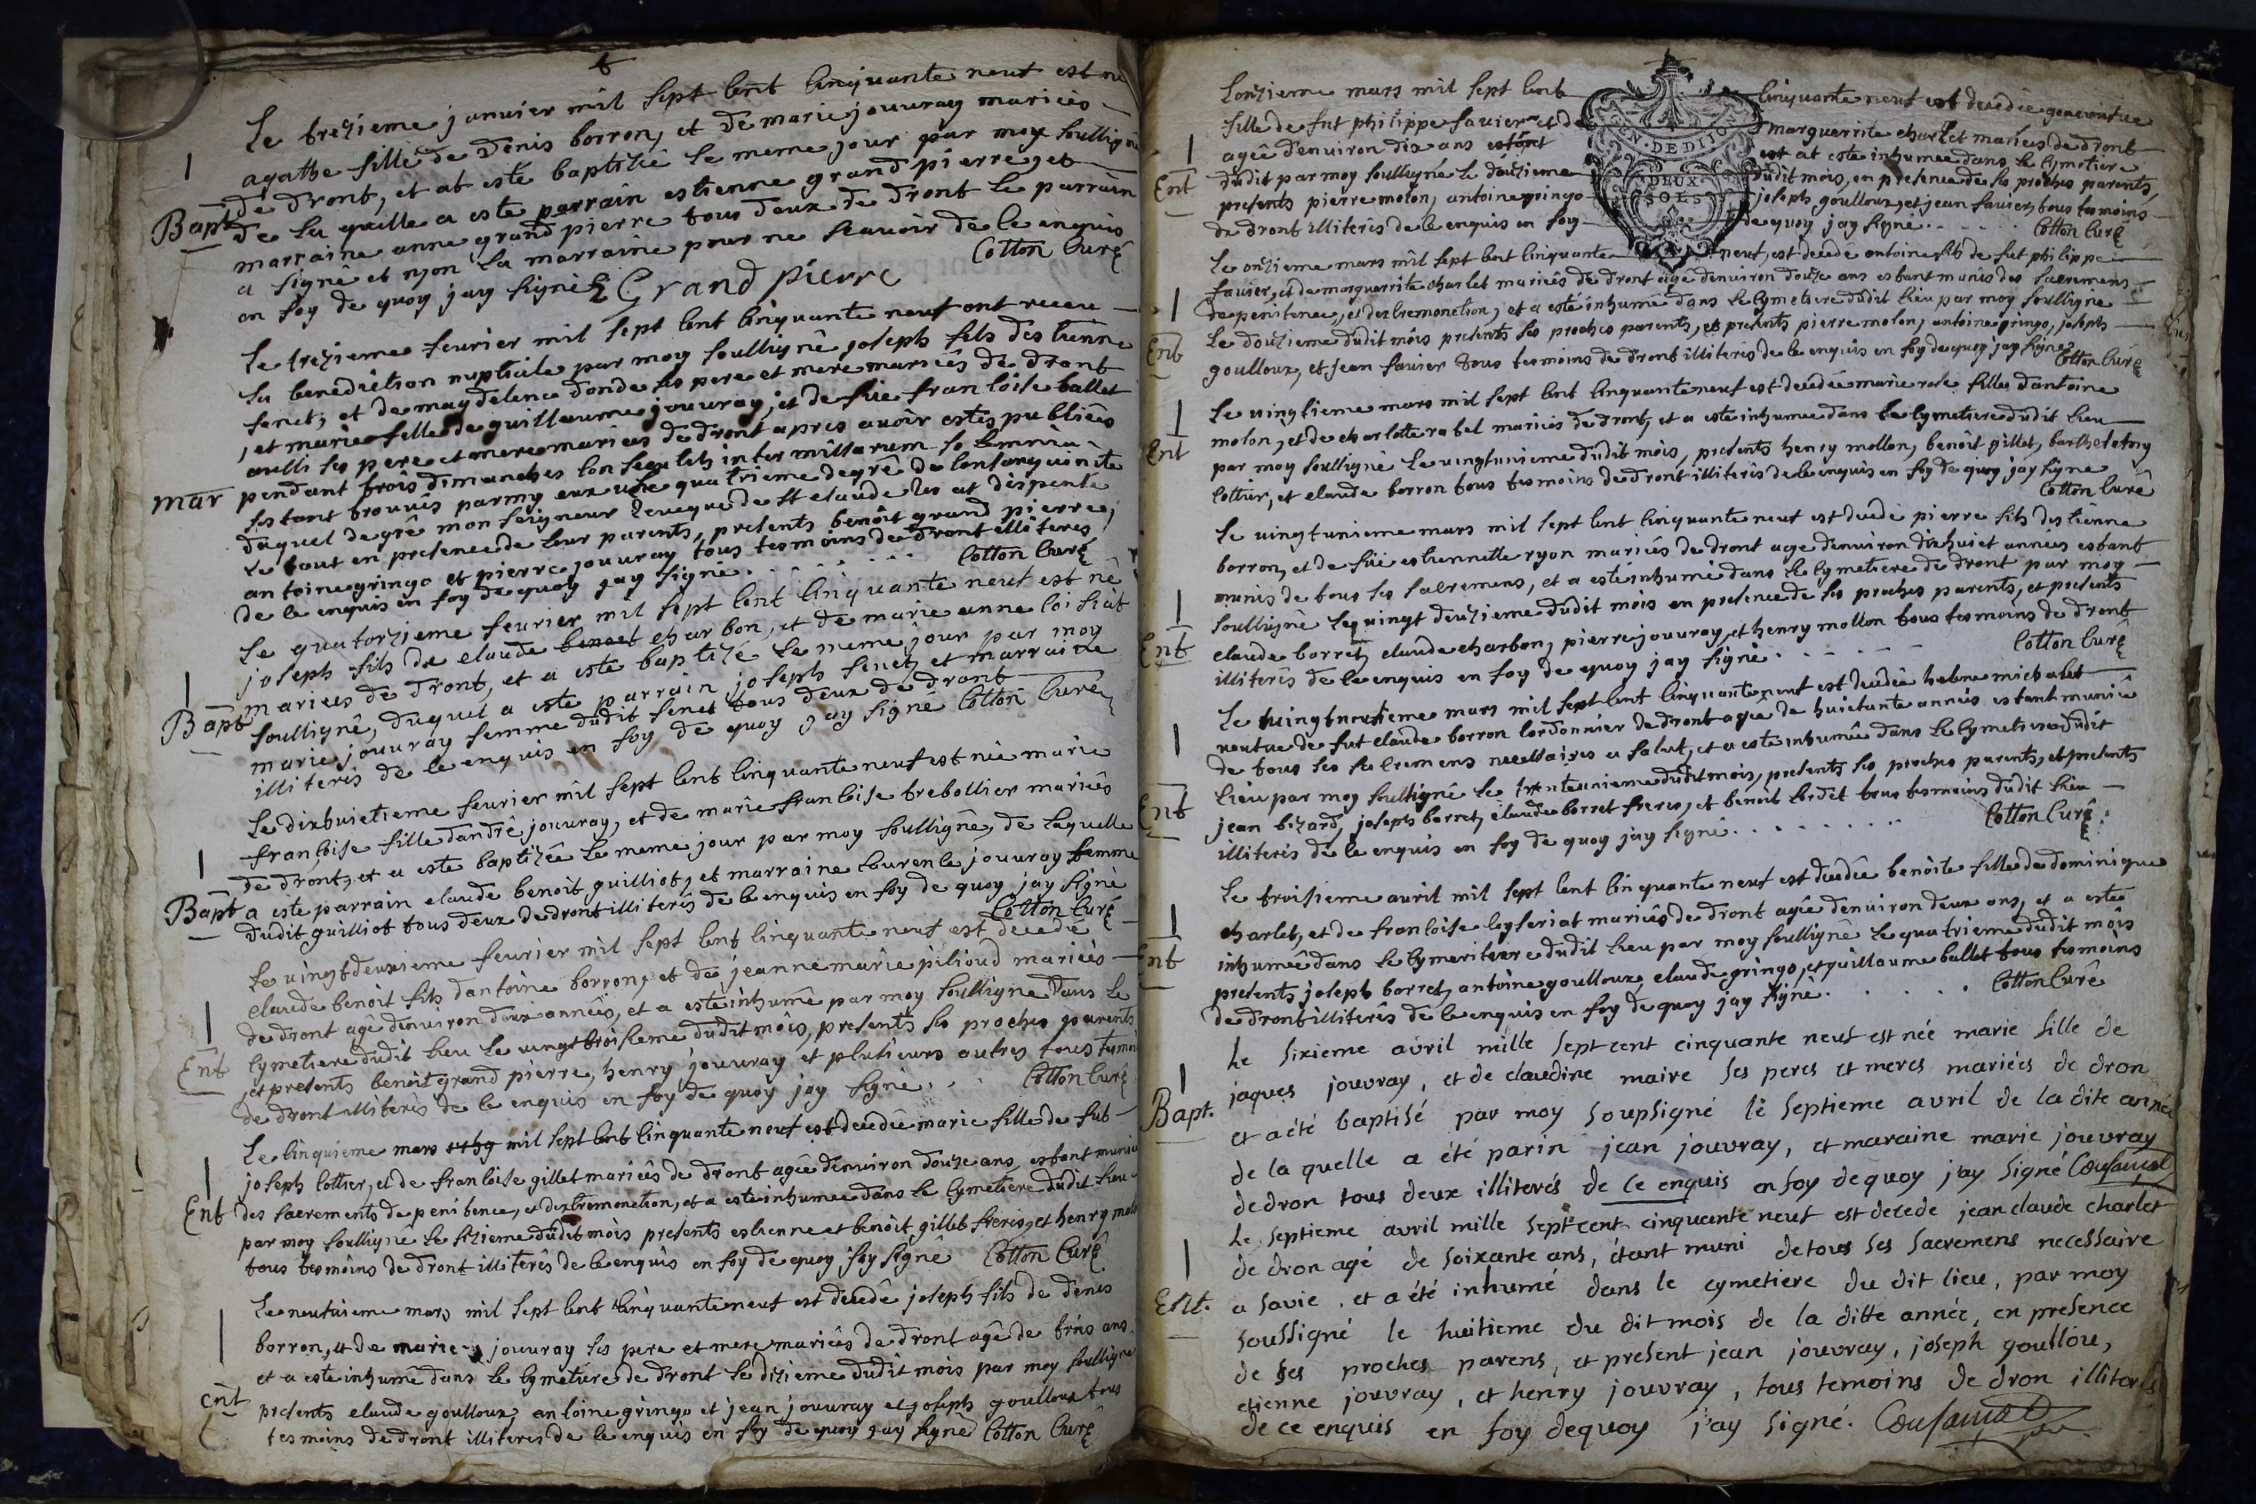 Le trezieme janvier mil sept cent cinquante neuf est né
agathe fille de Denis borron, et de marie jouvray mariés
de dront, et at esté baptisée le meme jour par moy soussigné
Bapt
de la quelle a esté parrain estienne grand pierre, et
marraine anne grand pierre tous deux de dront le parrain
a signé et non la marraine pour ne scavoir de ce enquis
en foy de quoy jay signé E Grand pierre
Cotton Curé
Le trezieme fevrier mil sept cent cinquante neuf ont receu
la benediction nuptiale par moy soussigné joseph fils destienne
fenet, et de magdelene donde ses pere et mere mariés de dront
, et marie fille de guillaume jouvray, et de fue francoise ballet
aussi ses pere et mere mariés de dront apres avoir estés publiées
mar
pendant trois dimanches consecutifs inter missarum solemnia
sestant trouvés parmy eux une quatrieme degré de consanguinité
duquel degré mon seigneur leveque de st claude les at dispensé
le tout en presence de leur parents, presents benoit grand pierre,
antoine gringo et pierre jouvray tous tesmoins de dront illiteres
de ce enquis en foy de quoy jay signé . . . . . . Cotton Curé
Le quatorzieme fevrier mil sept cent cinquante neuf est né
joseph fils de claude benoet charbon, et de marie anne loisiat
mariés de dront, et a esté baptizé le meme jour par moy
Bapt
soussigné, duquel a esté parrain joseph fenet, et marraine
marie jouvray femme dudit fenet tous deux de dront
illiterés de ce enquis en foy de quoy jay signé Cotton Curé
Le dixhuictieme fevrier mil sept cent cinquante neuf est née marie
francoise fille dandré jouvray, et de marie francoise trebollier mariés
de dront, et a esté baptizée le meme jour par moy soussigné, de laquelle
Bapt
a esté parrain claude benoit guilliot, et marraine laurence jouvray femme
dudit guilliot tous deux de dront illiterés de ce enquis en foy de quoy jay signé
Cotton Curé
Le vingtdeuxieme fevrier mil sept cent cinquante neuf est decedé
claude benoit fils dantoine borron, et de jeanne marie pilioud mariés
de dront agé denviron deux années, et a esté inhumé par moy soussigné dans le
Ent
cymetiere dudit lieu le vingt troisieme dudit mois, presents ses proches parents
, et presents benoit grand pierre, henry jouvray et plusieurs autres tous
de dront illiterés de ce enquis en foy de quoy jay signé . . . Cotton Curé
Le cinquieme mars 1759 mil sept cent cinquante neuf est decedée marie fille de fut
joseph cottier, et de francoise gillet mariés de dront agée denviron douze ans, estant munie
Ent
des sacrements de penitence, et dextremonction, et a esté inhumée dans le cymetiere dudit lieu
par moy soussigné le sizieme dudit mois presents estienne et benoit gillet freres, et henry
tous tesmoins de dront illiterés de ce enquis en foy de quoy jay signé Cotton Curé
Le neufvieme mars mil sept cent cinquante neuf est decedé joseph fils de denis
borron, et de marie jouvray ses pere et mere mariés de dront agé de trois ans,
et a esté inhumé dans le cymetiere de dront le dizieme dudit mois par moy soussigné
ent
presents claude goulloux, antoine gringo et jean jouvray et joseph goulloux tous
tesmoins de dront illiteres de ce enquis en foy de quoy jay signé Cotton Curé
Lonzieme mars mil sept cent cinquante neuf est decedée genevieve
GEN. DE DIJON
DEUX SOLS
fille de fut philippe favier et de marguerite charlet mariés de dront
agée denviron dix ans estant est at esté inhumée dans le cymetiere
Ent
dudit par moy soussigné le douzieme dudit mois, en presence de ses proches parents,
presents pierre molon, antoine gringo joseph goulloux, et jean favier, tous tesmoins
de dront illiterés de ce enquis en foy de quoy jay signé . . . . . . Cotton Curé
Le onzieme mars mil sept cent cinquante neuf, est decedé antoine fils de fut philippe
favier, et de marguerite charlet mariés de dront agé denviron douze ans estant munis des sacremens
de penitence, et dextremonction, et a esté inhumé dans le cymetiere dudit lieu par moy soussigné
Ent
Le douzieme dudit mois presents ses proches parents, et presents pierre molon, antoine gringo, joseph
goulloux, et jean favier tous tesmoins de dront illiterés de ce enquis en foy de quoy jay signé
Cotton Curé
Le vingtieme mars mil sept cent cinquante neuf est decedée marie rose fille dantoine
molon, et de charlotte rabel mariés de dront, et a esté inhumée dans le cymetiere dudit lieu
Ent
par moy soussigné le vingtunieme dudit mois, presents henry mollon, benoit gillet, barthelemy
cottier, et claude borron tous tesmoins de dront illiterés de ce enquis en foy de quoy jay signé
Cotton Curé
Le vingtunieme mars mil sept cent cinquante neuf est decedé pierre fils destienne
borron, et de fue estiennette ryon mariés de dront agé denviron dixhuict années estant
munis de tous ses sacremens, et a esté inhumé dans le cymetiere de dront par moy
soussigné le vingt deuzieme dudit mois en presence de ses proches parents, et presents
Ent
claude borret, claude charbon, pierre jouvray, et henry mollon tous tesmoins de dront
illiterés de ce enquis en foy de quoy jay signé . . . . . Cotton Curé
Le trentieme mars mil sept cent cinquante neuf est decedée helene michalet
veufve de fut claude borron cordonnier de dront agée de huictante années estant munie
de tous ses sacremens necessaires a salut, et a esté inhumée dans le cymetiere dudit
lieu par moy soussigné le trenteunieme dudit mois, presents ses proches parents, et presents
Ent
jean bizard, joseph borret, claude borret freres, et benoit cordet tous tesmoins dudit lieu
illiterés de ce enquis en foy de quoy jay signé . . . . . . . . Cotton Curé
Le troisieme avril mil sept cent cinquante neuf est decedée benoite fille de dominique
charlet, et de francoise leyseriat mariés de dront agée denviron deux ans, et a esté
Ent
inhumée dans le cymeritere dudit lieu par moy soussigné le quatrieme dudit mois
presents joseph borret, antoine goulloux, claude gringo, et guillaume ballet tous tesmoins
de dront illiterés de ce enquis en foy de quoy jay signé . . . . . Cotton Curé
Le sixieme avril mille sept cent cinquante neuf est née marie fille de
jaques jouvray, et de claudine maire ses peres et meres mariés de dron
Bapt.
et a été baptisé par moy soupsigné le septieme avril de la dite année
de la quelle a été parin jean jouvray, et maraine marie jouvray
de dron tous deux illiterés de ce enquis en foy dequoy jay signé
Le septieme avril mille sept cent cinquante neuf est decede jean claude charlet
de dron agé de soixante ans, étant muni de tous ses sacremens necessaire
Ent.
a savie, et a été inhumé dans le cymetiere du dit lieu, par moy
soussigné le huitieme du dit mois de la ditte année, en presence
de ses proches parens, et present jean jouvray, joseph goullou,
etienne jouvray, et henry jouvray, tous temoins de dron illiterés
de ce enquis en foy dequoy j'ay signé.